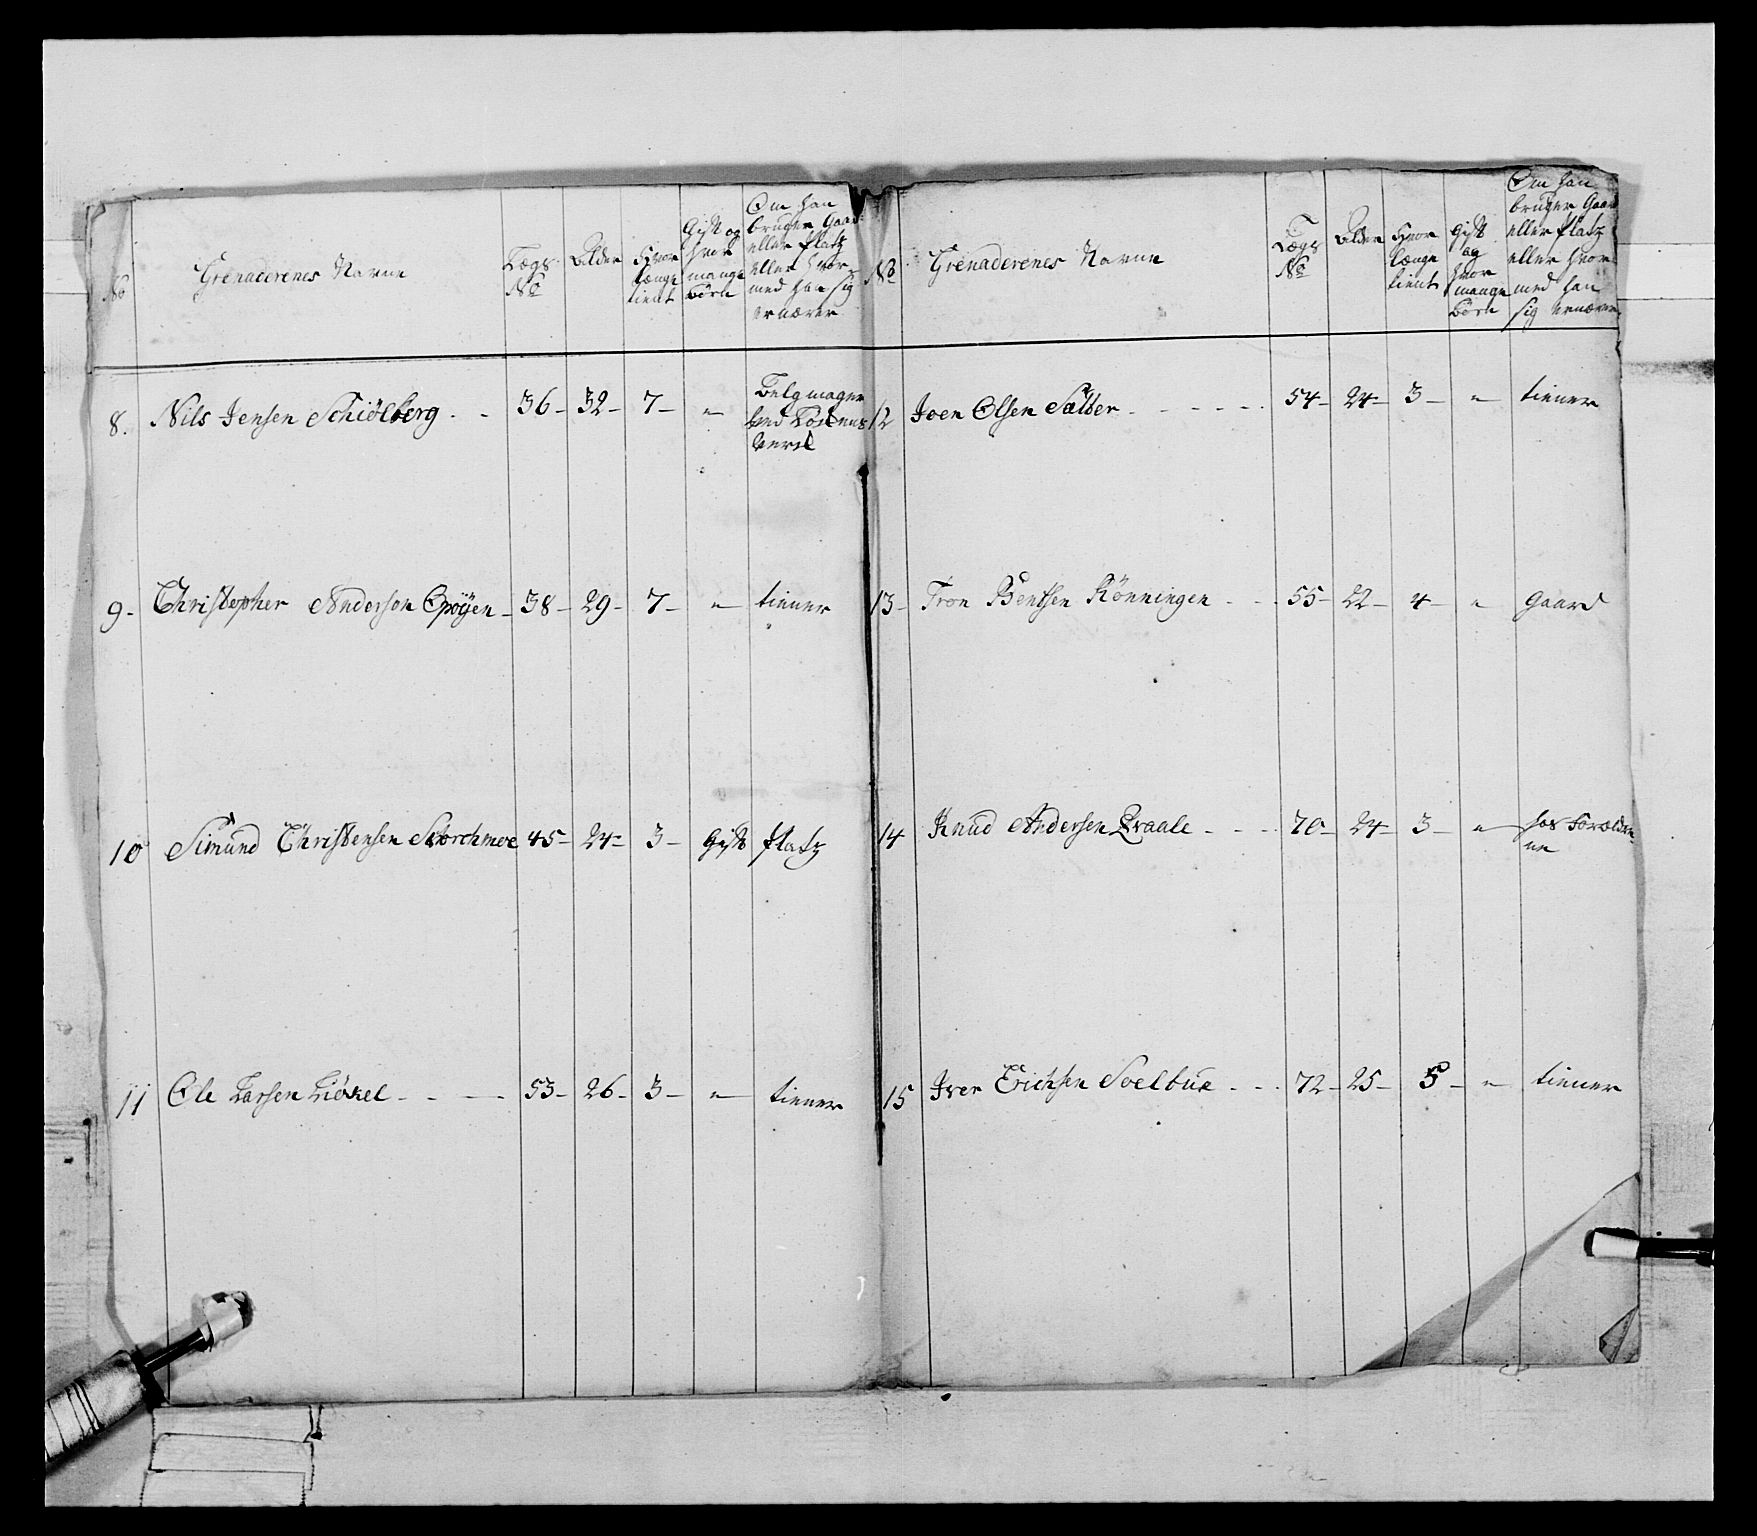 No
Grenaderenes Navne
Lægs No
Alder
Hvor længe tient
Gift og hvor mange Børn
Om han bruger Gaard eller Platz eller hvormed han sig ernærer
8. Nils Jensen Schiölberg - - 36 - 32 - 7 - " Belgmager ved Værck
9 - Christopher Anderson Opöyen - 38 - 29 - 7 - " tiener
10 Simund Christensen Storchmoe 45 - 24 - 3 - Gift Platz
11 Ole Larsen Liökel - - - - 53 - 26 - 3 - " tiener
No
Grenaderenes Navne
Lægs No
Alder
Hvor længe tient
Gift og hvor mange Børn
Om han bruger Gaard eller Platz eller hvormed han sig ernærer
12 Joen Olsen Sætter - - - - - - 54 - 24 - 3 - " tiener
13 - Tron Bentsen Rönningen - - - 55 - 22 - 4 - " Gaard
14 Knud Andersen Qvaale - - - 70 - 24 - 3 - " hos Forældrene
15 Iver Erichsen Soelbue - - - 72 - 25 - 5 - " tiener